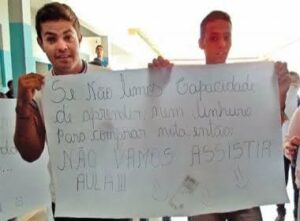 Se Não temos Capacidade
de aprender, nem dinheiro
Para comprar nota então:
NÃO VAMOS ASSISTIR
AULA!!!